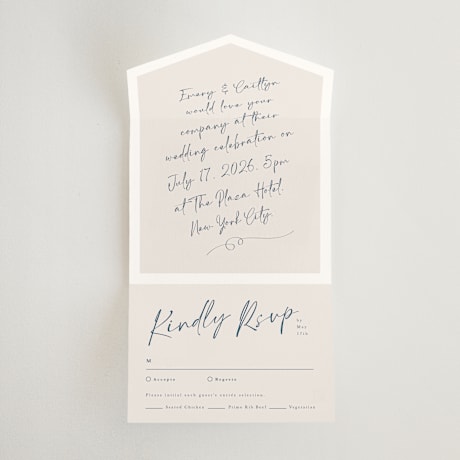 Emery & Caitlyn
would love your
company at their
wedding celebration on
July 17, 2026, 5pm
at The Plaza Hotel,
New York City.
Kindly Rsvp
by
May
17th
M
Accepts Regrets
Please initial each guest's entrée selection.
Seared Chicken Prime Rib Beef Vegetarian